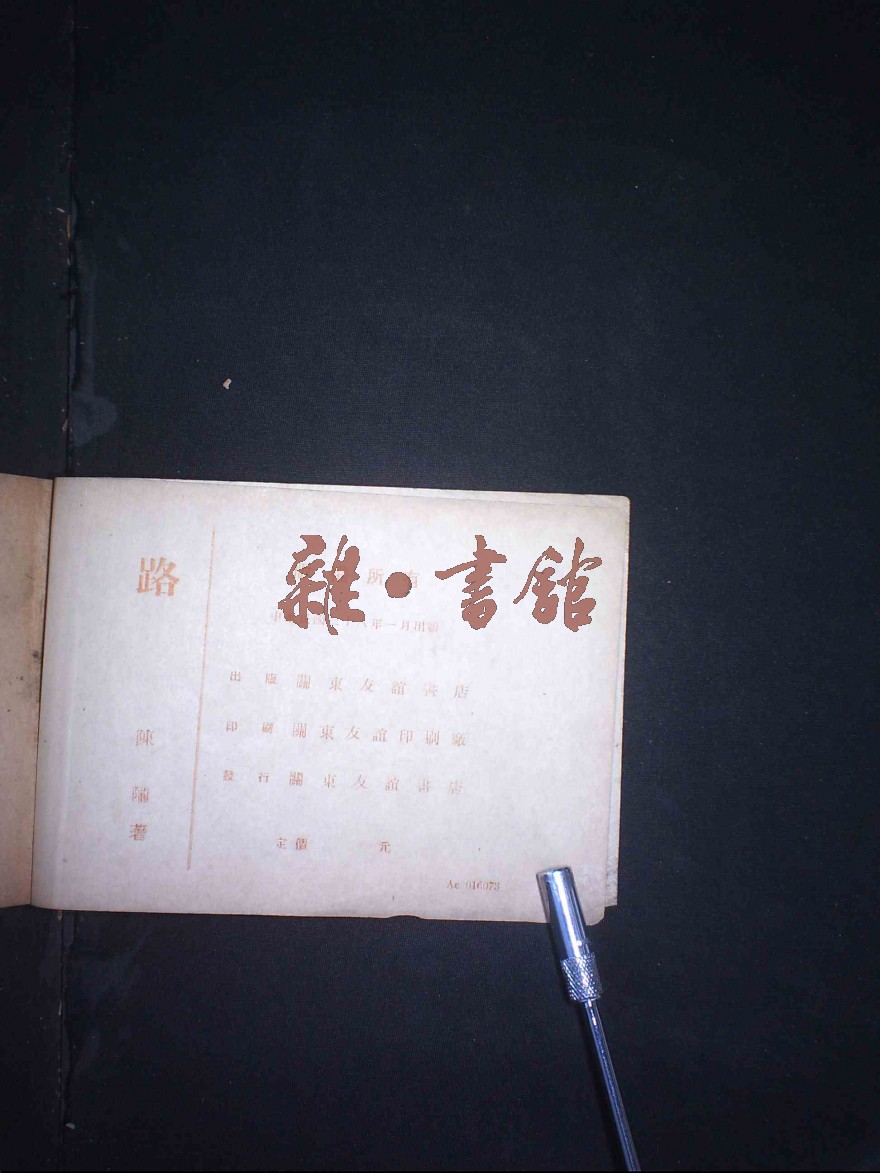 路
陳
著
雜·書館
所有
年一月出版
出版 關東友誼書店
印刷 關東友誼印刷廠
發行 關東友誼書店
定價 元
Ac 016073